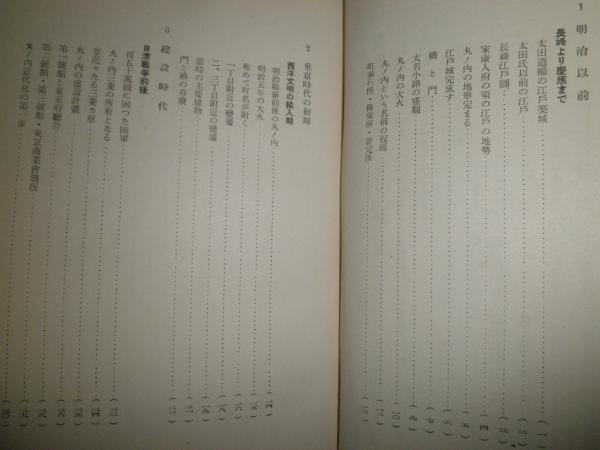 1 明治以前
長祿より慶應まで
太田道灌の江戸築城……(一)
太田氏以前の江戸……(二)
長祿江戸圖……(三)
家康入府の頃の江戸の地勢……(四)
丸ノ内の地形定まる……(五)
江戸城完成す……(六)
橋と門……(七)
大名小路の盛觀……(九)
丸ノ内の大火……(一〇)
丸ノ内という名稱の起源……(一一)
町奉行所・傳奏所・評定所……(一三)
2 東京時代の初期
西洋文明の輸入期
明治維新前後の丸ノ内……(一四)
明治五年の大火……(一五)
初めて町名が附く……(一六)
一丁目附近の變遷……(一八)
二、三丁目附近の變遷……(一九)
當時の主要建物……(二一)
門と橋の存廢……(二二)
3 建設時代
日清戰爭前後
百五十萬圓に困つた陸軍……(二三)
丸ノ内三菱の所有となる……(二四)
草茫々たる三菱ガ原……(二四)
丸ノ内の建設計畫……(二五)
第一號館と東京府廳舍……(二六)
第二號館・第三號館・東京商業會議所……(二八)
丸ノ内近代化の第一歩……(二九)